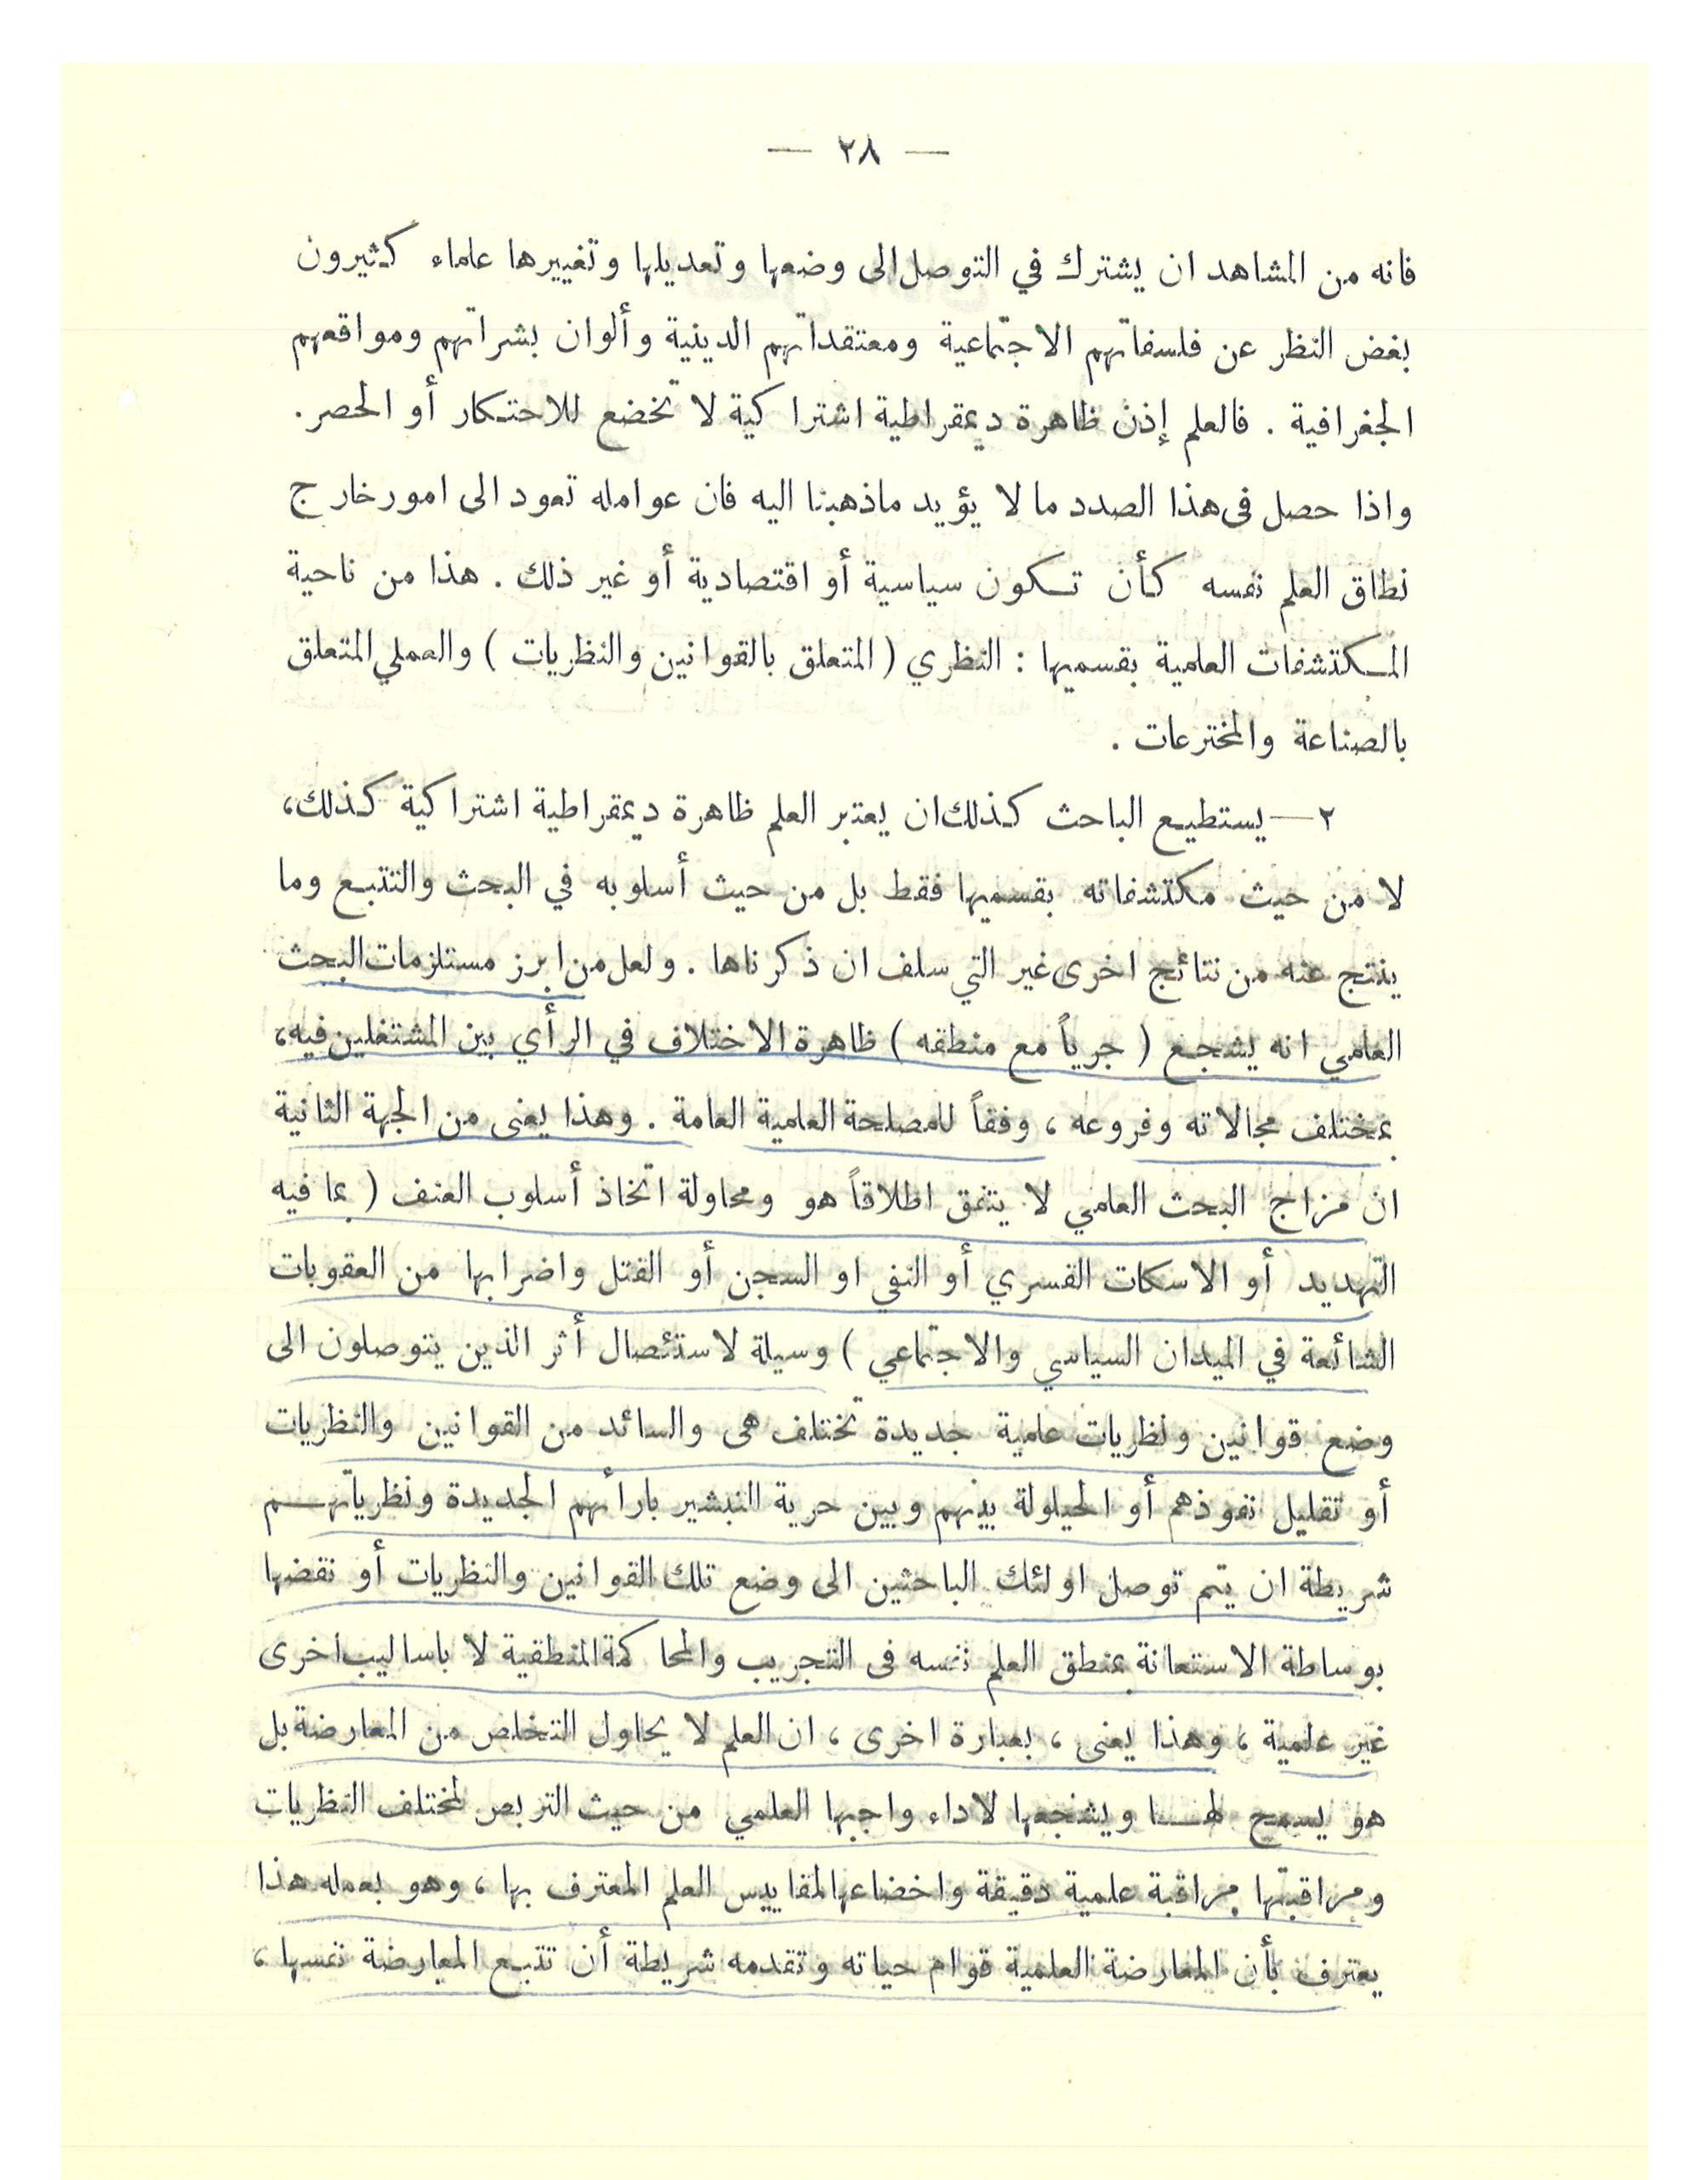 — ٢٨ —
فانه من المشاهد ان يشترك في التوصل الى وضعها وتعديلها وتغييرها علماء كثيرون
بغض النظر عن فلسفاتهم الاجتماعية ومعتقداتهم الدينية وألوان بشراتهم ومواقعهم
الجغرافية . فالعلم إذن ظاهرة ديمقراطية اشتراكية لا تخضع للاحتكار أو الحصر .
واذا حصل فى هذا الصدد ما لا يؤيد ماذهبنا اليه فان عوامله تعود الى امور خارج
نطاق العلم نفسه كأن تكون سياسية أو اقتصادية أو غير ذلك . هذا من ناحية
المكتشفات العلمية بقسميها : النظري ( المتعلق بالقوانين والنظريات ) والعملي المتعلق
بالصناعة والمخترعات .
٢ — يستطيع الباحث كذلك ان يعتبر العلم ظاهرة ديمقراطية اشتراكية كذلك،
لا من حيث مكتشفاته بقسميها فقط بل من حيث أسلوبه في البحث والتتبع وما
ينتج عنه من نتائج اخرى غير التي سلف ان ذكرناها . ولعل من ابرز مستلزمات البحث
العلمي انه يشجع ( جرياً مع منطقه ) ظاهرة الاختلاف في الرأي بين المشتغلين فيه،
بمختلف مجالاته وفروعه ، وفقاً للمصلحة العلمية العامة . وهذا يعنى من الجهة الثانية
ان مزاج البحث العلمي لا يتفق اطلاقاً هو ومحاولة اتخاذ أسلوب العنف ( بما فيه
التهديد أو الاسكات القسري أو النفي او السجن أو القتل واضرابها من العقوبات
الشائعة في الميدان السياسي والاجتماعي ) وسيلة لاستئصال أثر الذين يتوصلون الى
وضع قوانين ونظريات علمية جديدة تختلف هى والسائد من القوانين والنظريات
أو تقليل نفوذهم أو الحيلولة بينهم وبين حرية التبشير بارائهم الجديدة ونظرياتهم
شريطة ان يتم توصل اولئك الباحثين الى وضع تلك القوانين والنظريات أو نقضها
بوساطة الاستعانة بمنطق العلم نفسه فى التجريب والمحاكمة المنطقية لا باساليب اخرى
غير علمية ، وهذا يعنى ، بعبارة اخرى ، ان العلم لا يحاول التخلص من المعارضة بل
هو يسمح لهــا ويشجعها لاداء واجبها العلمي من حيث التربص لمختلف النظريات
ومراقبتها مراقبة علمية دقيقة واخضاعها لمقاييس العلم المعترف بها ، وهو بعمله هذا
يعترف بأن المعارضة العلمية قوام حياته وتقدمه شريطة أن تتبع المعارضة نفسها ،